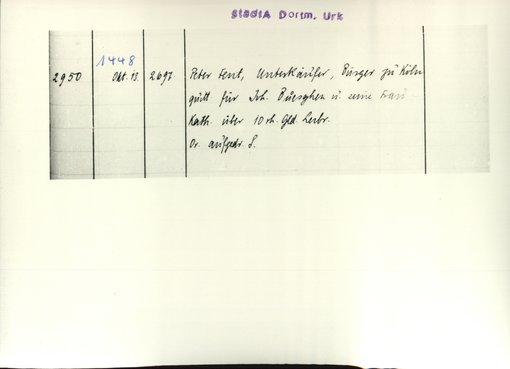 StadtA Dortm. Urk
1448
2950 Okt. 13. 2697 Peter Fent, Unterkäufer, Bürger zu Köln
quitt für Joh. Duesghen u seine Frau
Kath. über 10 rh. Gld. Leibr.
Or. aufgedr. S.